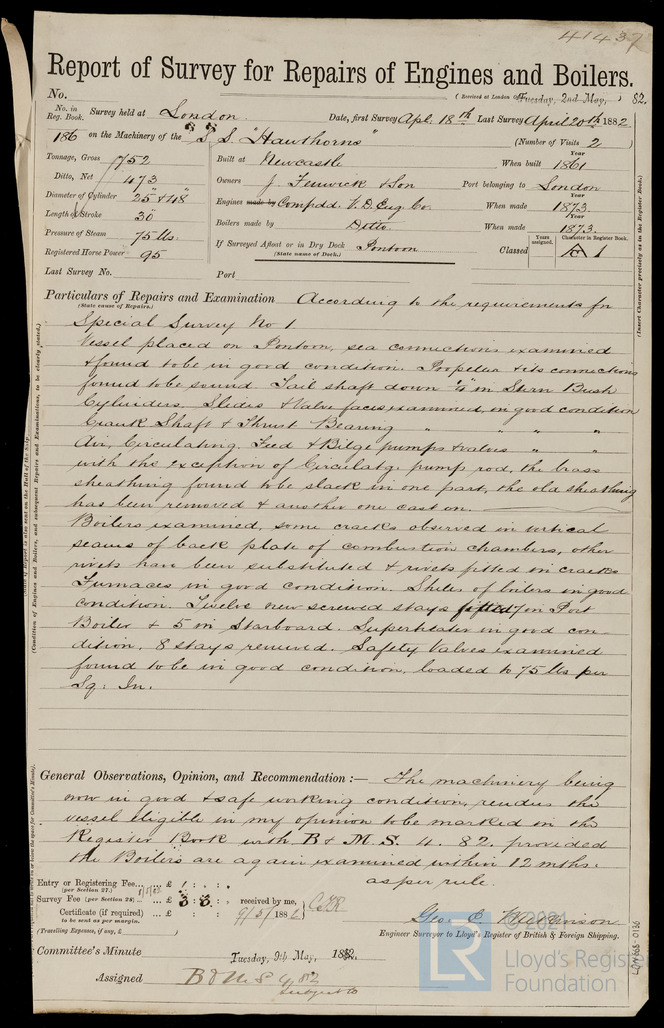 41437
Report of Survey for Repairs of Engines and Boilers.
No.
(Received at London Office Tuesday, 2nd May, 82.
No. in Reg. Book. Survey held at London. Date, first Survey Apl. 18th Last Survey April 20th 1882
186 on the Machinery of the S.S. "Hawthorns" (Number of Visits 2
Tonnage, Gross 752
Ditto, Net 473
Diameter of Cylinder 25" & 48"
Length of Stroke 30
Pressure of Steam 75 lbs.
Registered Horse Power 95
Built at Newcastle When built Year 1861
Owners J. Fenwick & Son Port belonging to London
Engines made by Compdd. N.D. Eng. Co. When made Year 1873.
Boilers made by Ditto When made Year 1873.
If Surveyed Afloat or in Dry Dock Pontoon
(State name of Dock.)
Classed Years assigned. Character in Register Book. A 1
Last Survey No. Port
Particulars of Repairs and Examination According to the requirements for
(State cause of Repairs.)
Special Survey No 1.
Vessel placed on Pontoon, sea connections examined
& found to be in good condition. Propeller & its connections
found to be sound. Tail shaft down 1/4 in Stern Bush
Cylinders, Slides & Valve faces examined in good condition
Crank Shaft & Thrust Bearing " " "
Air, Circulating, Feed & Bilge pumps & valves " "
with the exception of Circulatg. pump rod, the brass
sheathing found to be slack in one part, the old sheathing
has been removed & another one cast on.
Boilers examined, some cracks observed in vertical
seams of back plate of combustion chambers, other
rivets have been substituted & rivets fitted in cracks
Furnaces in good condition. Shells of boilers in good
condition. Twelve new screwed stays fitted in Port
Boiler & 5 in Starboard. Superheater in good con-
dition, 8 stays renewed. Safety Valves examined
found to be in good condition, loaded to 75 lbs per
Sq: In.
General Observations, Opinion, and Recommendation :— The machinery being
now in good & safe working condition, renders the
vessel eligible in my opinion to be marked in the
Register Book with B & M.S. 4. 82. provided
the Boilers are again examined within 12 mths.
as per rule.
Entry or Registering Fee... £ 1 : :
(per Section 27.)
Survey Fee (per Section 28) ... £ 3 : 3 : received by me,
Certificate (if required) ... £ : : 9/5/ 1882
to be sent as per margin.
(Travelling Expenses, if any, £ )
Engineer Surveyor to Lloyd's Register of British & Foreign Shipping.
Committee's Minute Tuesday, 9th May, 1882.
Assigned B & M S 4.82
subject to
(Insert Character precisely as in the Register Book.)
(Condition of Engines and Boilers, and subsequent Repairs and Examinations, to be clearly stated.)
LON868-0186
© 2021
LR
Lloyd's Register
Foundation